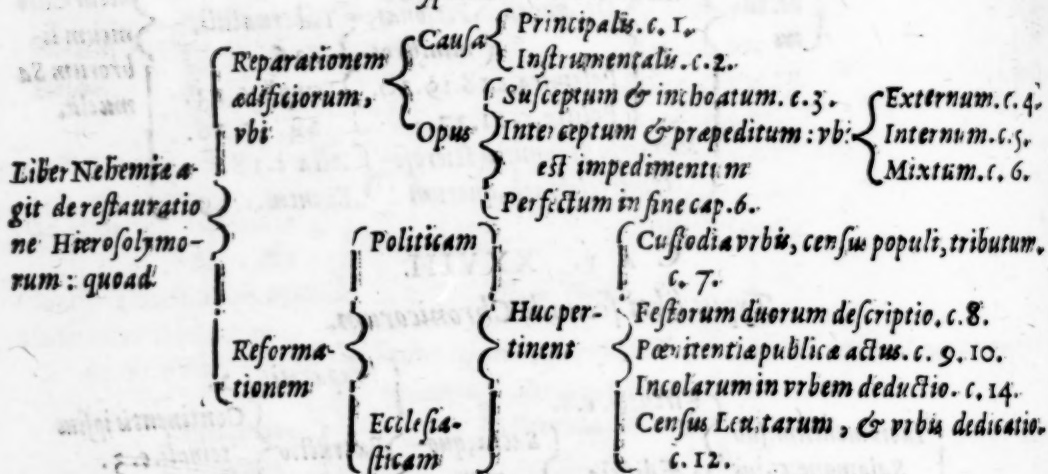 Liber Nehemiæ a-
git de restauratio
ne Hierosolymo-
rum: quoad
Reparationem
ædificiorum,
vbi
Causa
Principalis. c. 1.
Instrumentalis. c. 2.
Opus
Susceptum & inchoatum. c. 3.
Interceptum & præpeditum: vbi
est impedimentum
Externum. c. 4.
Internum. c. 5.
Mixtum. c. 6.
Perfectum in fine cap. 6.
Reforma-
tionem
Politicam
Ecclesia-
sticam
Huc per-
tinent
Custodia vrbis, census populi, tributum.
c. 7.
Festorum duorum descriptio. c. 8.
Pœnitentiæ publicæ actus. c. 9. 10.
Incolarum in vrbem deductio. c. 14.
Census Leuitarum, & vrbis dedicatio.
c. 12.